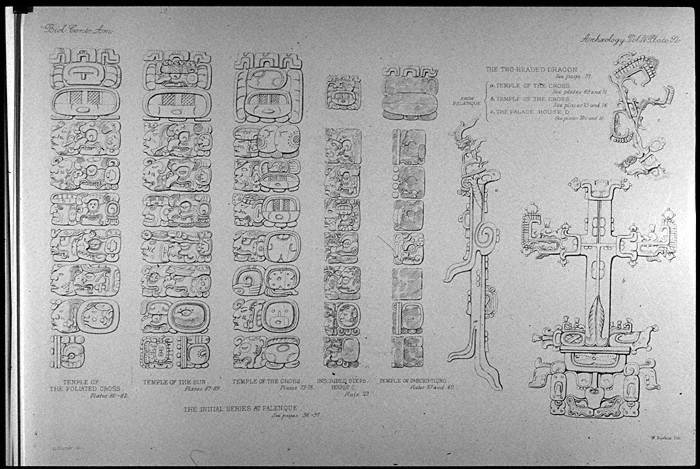 Biol. Centr. Am.
Archæology Vol. IV Plate 92
THE TWO-HEADED DRAGON.
See page
FROM
PALENQUE
a. TEMPLE OF THE CROSS.
See plates
b. TEMPLE OF THE CROSS.
See plates
c. THE PALACE HOUSE D.
See plates
TEMPLE OF
THE FOLIATED CROSS.
Plates 80-82.
TEMPLE OF THE SUN.
Plates 87-89.
TEMPLE OF THE CROSS.
Plates
INSCRIBED STEPS
HOUSE C.
Plate 23
TEMPLE OF INSCRIPTIONS
Plates 57 and 60.
THE INITIAL SERIES AT PALENQUE.
See pages